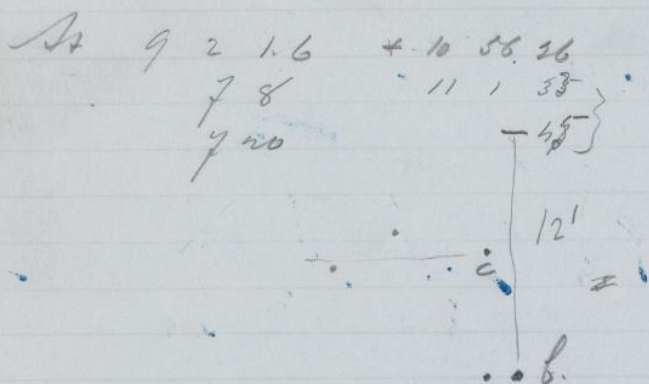 At 9 2 1.6 * 10 56. 26
7 8 11 1 35
7 20 — 45
12'
c
f.